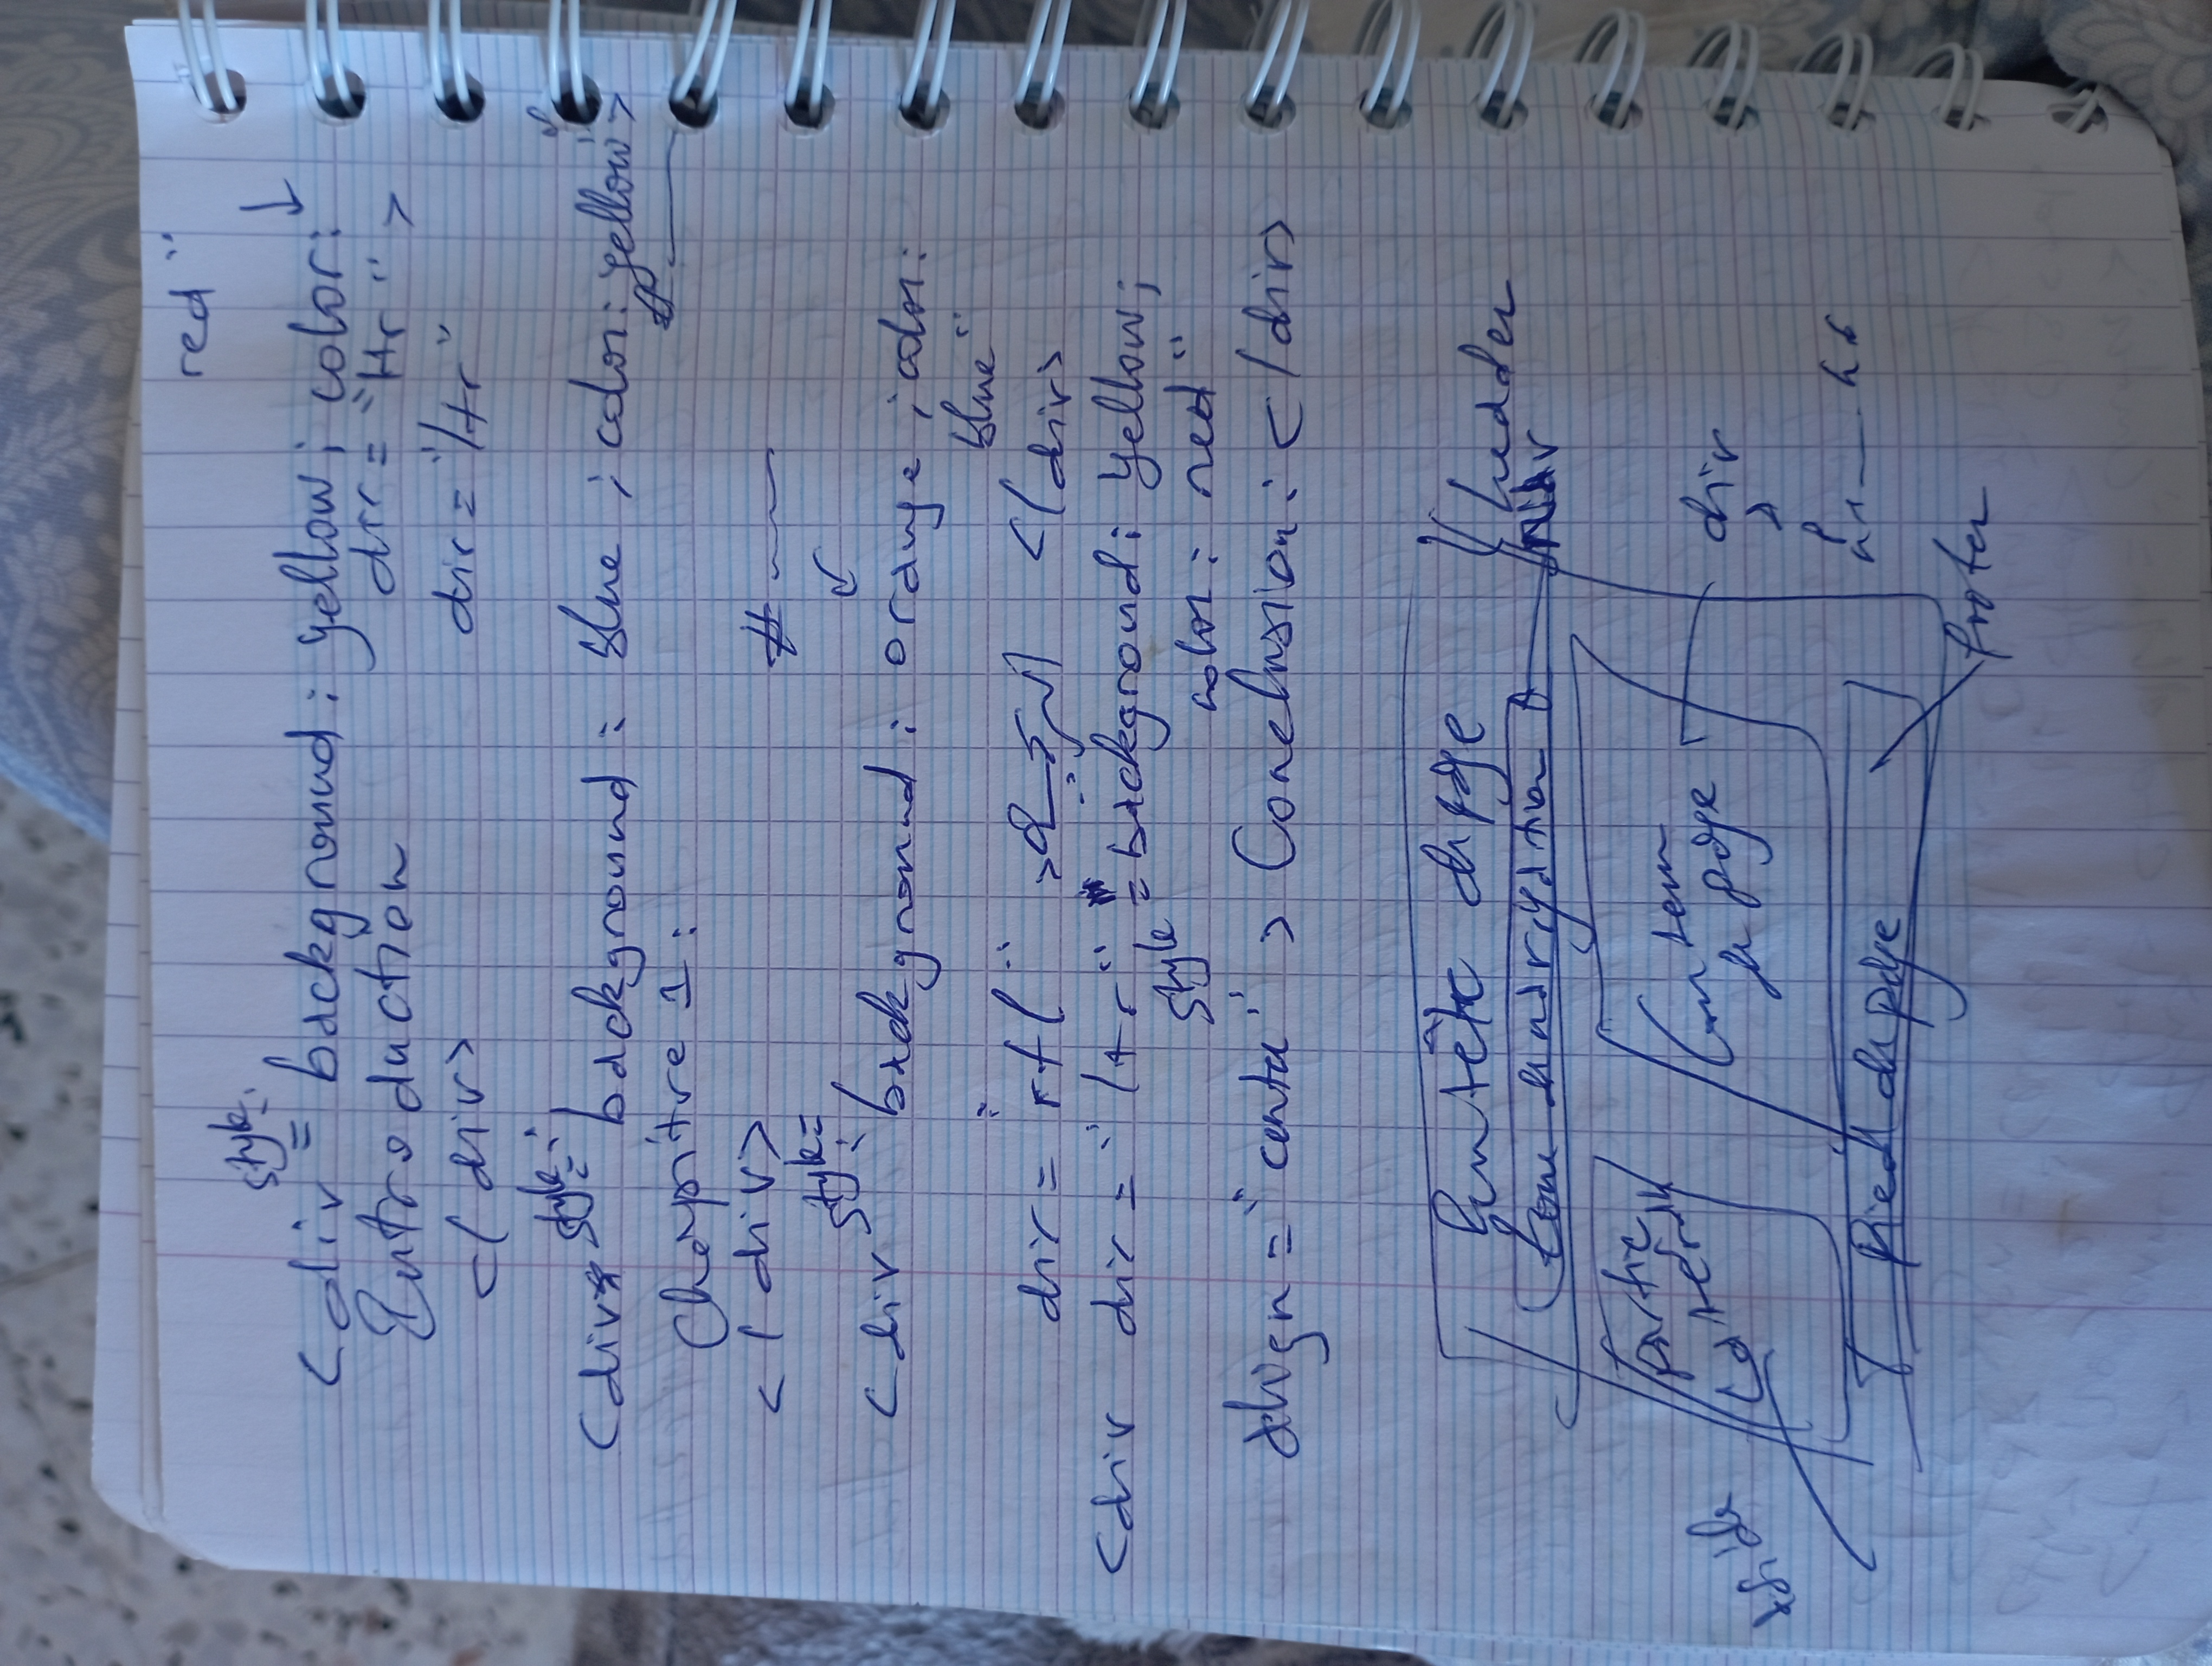 red"
style=
<div = background : yellow ; color :
Entroduction dir = "ltr" >
</div> dir = "ltr"
<div style=" background : blue ; color : yellow">
Chapitre 1 :
</div>
style="
<div background : orange ; color :
blue"
dir = "rtl" > </div>
<div dir = "ltr" = background : yellow ;
style color : red"
align = "center" > Conclusion : </div>
Entête de page header
Zone de navigation
Partie
Latérale
Contenu
de page
div
Pied de page
footer